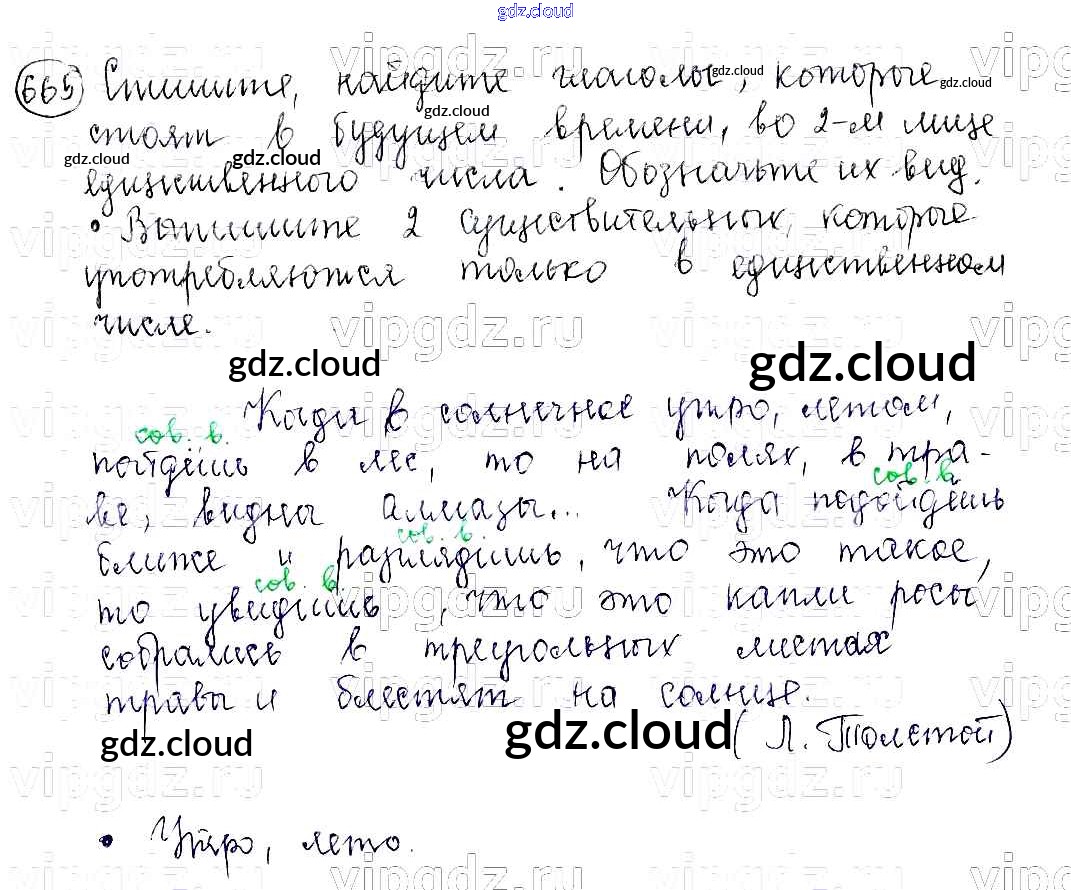 gdz.cloud
665 Спишите, найдите глаголы, которые
стоят в будущем времени, во 2-м лице
единственного числа. Обозначьте их вид.
• Выпишите 2 существительных, которые
употребляются только в единственном
числе.
gdz.cloud gdz.cloud
Когда в солнечное утро, летом,
сов. в.
пойдёшь в лес, то на полях, в тра-
сов. в.
ве, видны алмазы... Когда подойдёшь
сов. в.
ближе и разглядишь, что это такое,
сов. в.
то увидишь, что это капли росы
собрались в треугольных листах
травы и блестят на солнце.
gdz.cloud gdz.cloud (Л. Толстой)
• Утро, лето.
vipgdz.ru